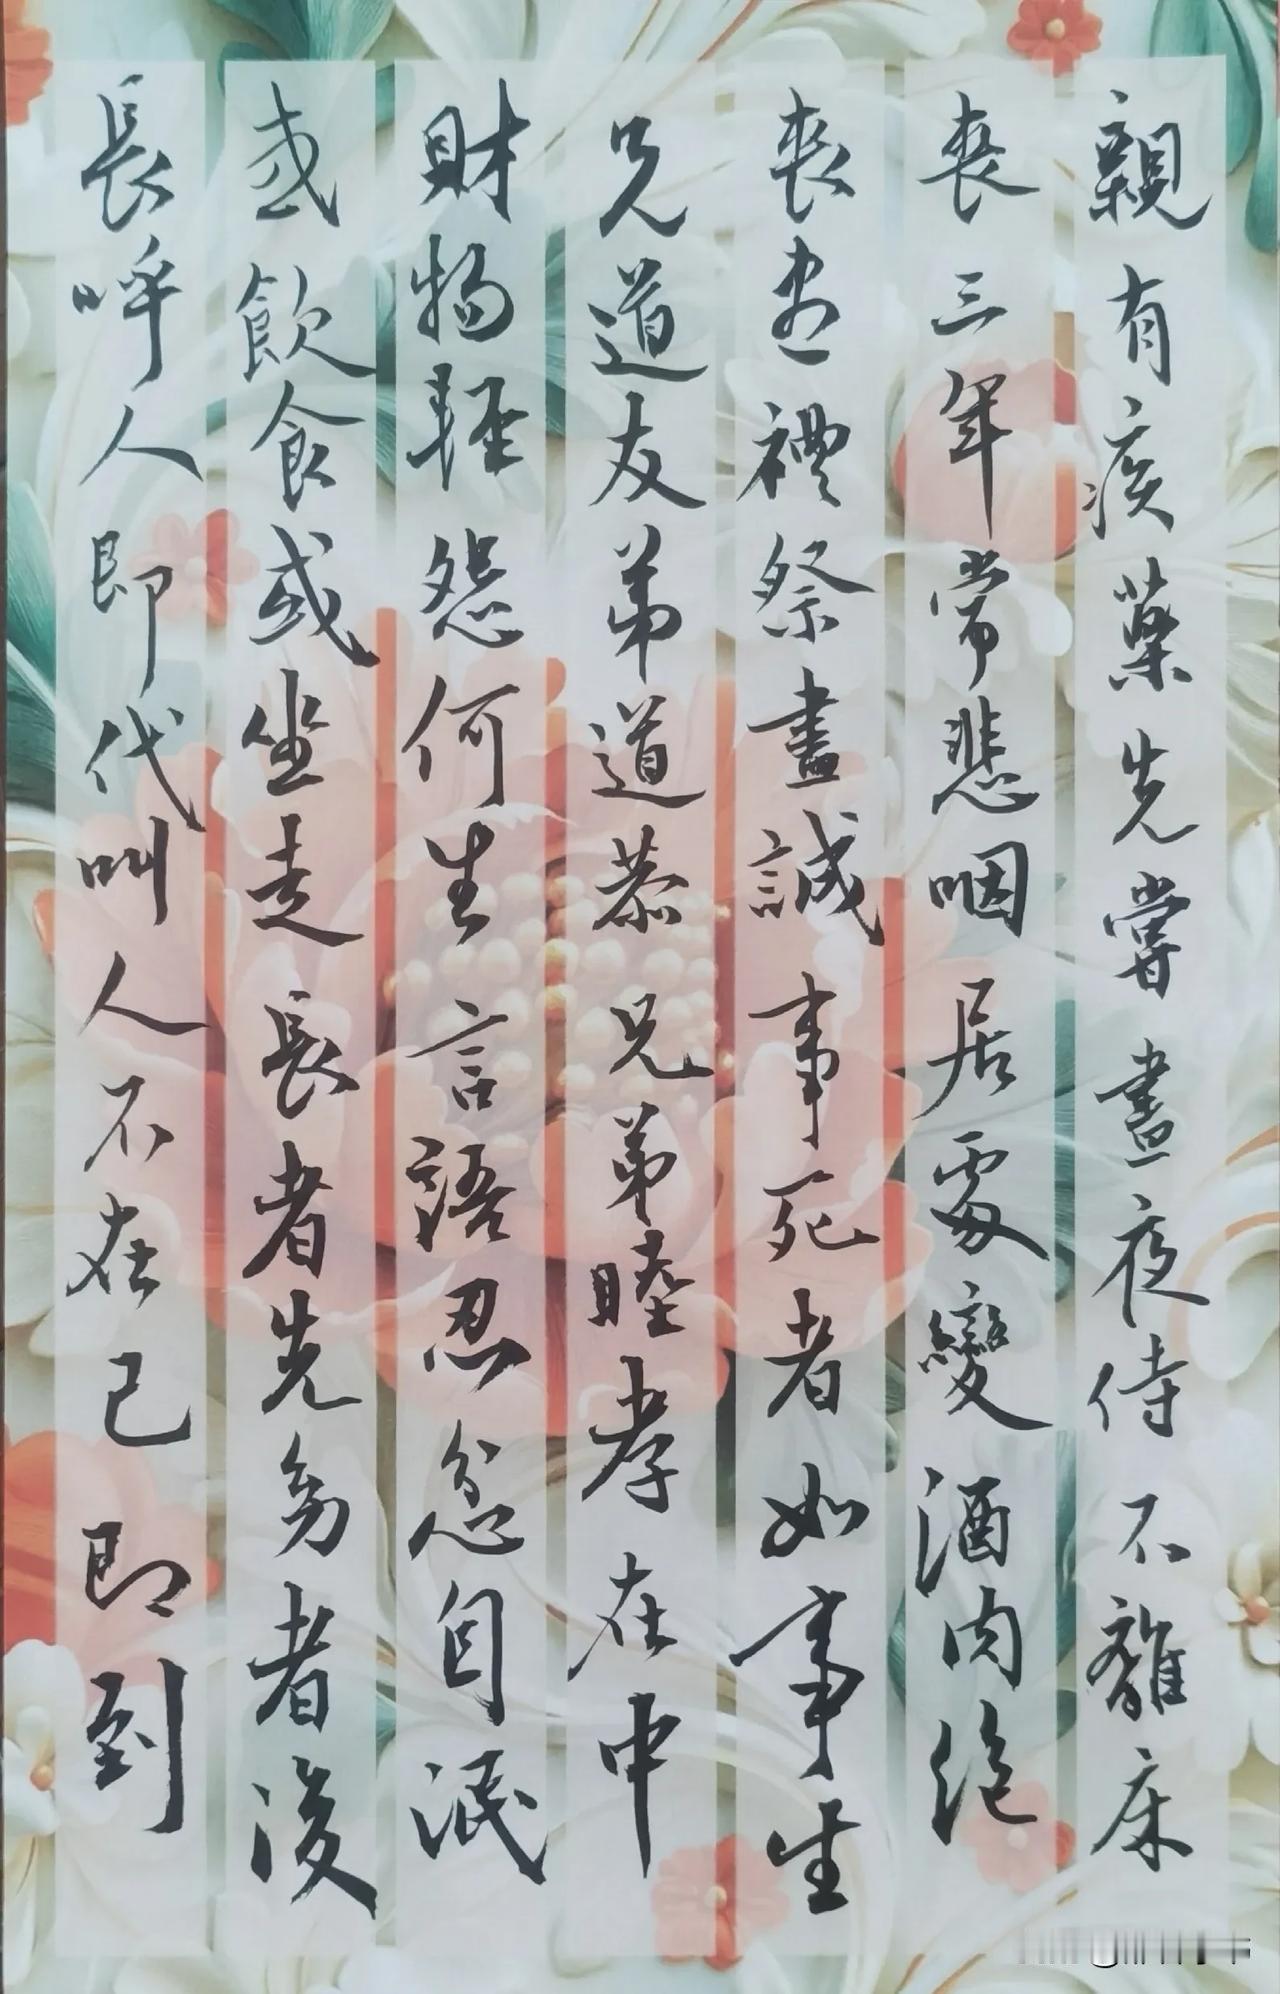 親有疾藥先嘗晝夜侍不離床
喪三年常悲咽居處變酒肉絕
喪盡禮祭盡誠事死者如事生
兄道友弟道恭兄弟睦孝在中
財物輕怨何生言語忍忿自泯
或飲食或坐走長者先幼者後
長呼人即代叫人不在己即到